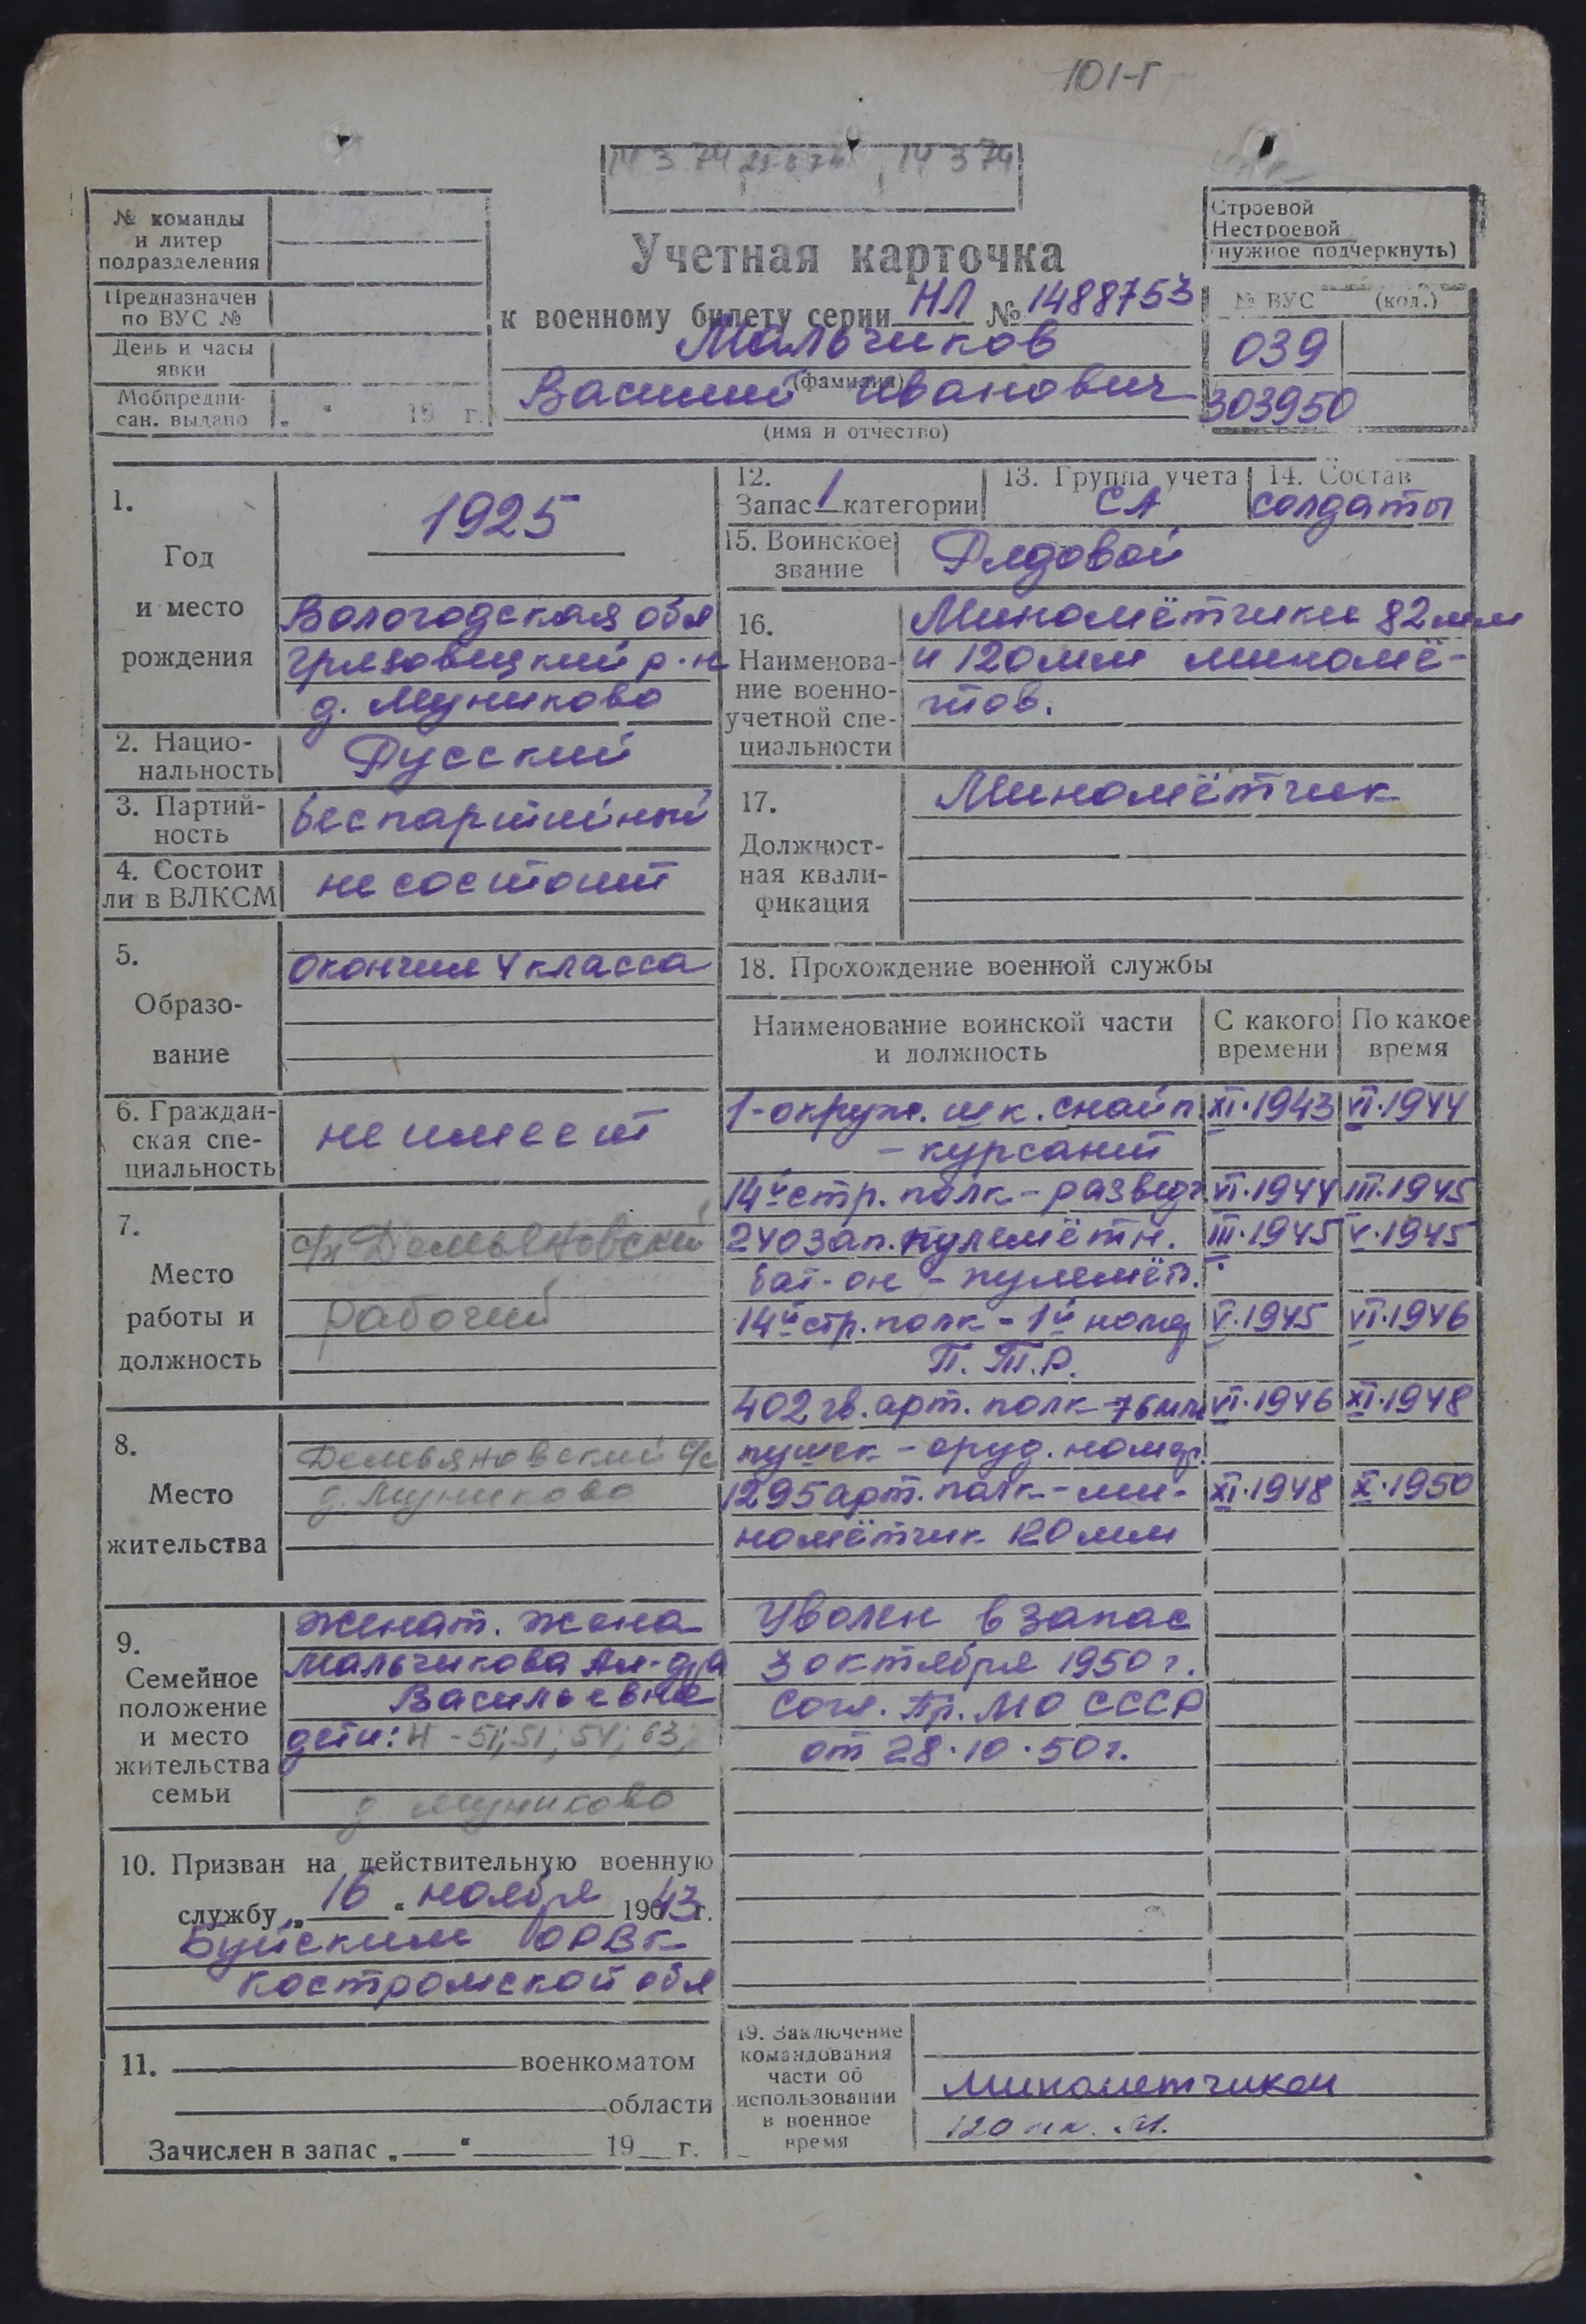 101-Г
14 3 74 14 3 74
№ команды
и литер
подразделения
Предназначен
по ВУС №
День и часы
явки
Мобпредпи-
сан. выдано „ “ 19 г.
Учетная карточка
к военному билету серии НЛ № 1488753
Мальчиков
(фамилия)
Василий Иванович
(имя и отчество)
Строевой
Нестроевой
(нужное подчеркнуть)
№ ВУС (код.)
039
303950
1.
Год
и место
рождения
1925
Вологодская обл
Грязовецкий р-н
д. Муниково
2. Нацио-
нальность
Русский
3. Партий-
ность
беспартийный
4. Состоит
ли в ВЛКСМ
не состоит
5.
Образо-
вание
окончил 4 класса
6. Граждан-
ская спе-
циальность
не имеет
7.
Место
работы и
должность
Демьяновский
рабочий
8.
Место
жительства
Демьяновский с/с
д. Муниково
9.
Семейное
положение
и место
жительства
семьи
женат. жена
Мальчикова Ал-дра
Васильевна
дети: 4 - 51; 51; 54; 63;
д. Муниково
10. Призван на действительную военную
службу „16“ ноября 1943 г.
Буйским ОРВК
Костромской обл
11. военкоматом
области
Зачислен в запас „ “ 19 г.
12.
Запас 1 категории
13. Группа учета
СА
14. Состав
солдаты
15. Воинское
звание
Рядовой
16.
Наименова-
ние военно-
учетной спе-
циальности
Миномётчики 82 мм
и 120 мм миномё-
тов.
17.
Должност-
ная квали-
фикация
Миномётчик
18. Прохождение военной службы
Наименование воинской части
и должность
С какого
времени
По какое
время
1-окруж. шк. снайп. XI.1943 VI.1944
- курсант
14й стр. полк - разведч. VI.1944 III.1945
240 зап. пулемётн. III.1945 V.1945
бат-он - пулемёт.
14й стр. полк - 1й номер V.1945 VI.1946
П.Т.Р.
402 гв. арт. полк 76 мм VI.1946 XI.1948
пушек - оруд. номер.
1295 арт. полк - ми- XI.1948 X.1950
номётчик 120 мм
Уволен в запас
3 октября 1950 г.
Согл. Пр. МО СССР
от 28.10.50 г.
19. Заключение
командования
части об
использовании
в военное
время
Минометчиком
120